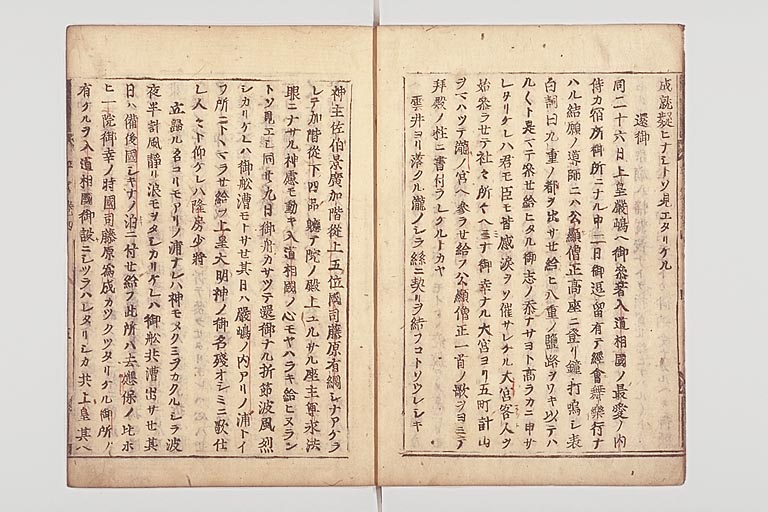 成就疑ヒナシトソ見エタリケル
還御
同二十六日上皇嚴嶋ヘ御參著入道相國ノ最愛ノ内
侍カ宿所御所ニナル中二日御逗留有テ經會舞樂行ナ
ハル結願ノ導師ニハ公顯僧正高座ニ登リ鐘打鳴シ表
白ノ詞ニ九重ノ都ヲ出サセ給ヒ八重ノ鹽路ヲワキ以テハ
ルヽト是マテ參セ給ヒタル御志ノ忝ナサヨト高ラカニ申サ
レタリケレハ君モ臣モ皆感涙ヲソ催サレケル大宮客人ヲ
始參ラセテ社々所々ヘミナ御幸ナル大宮ヨリ五町計山
ヲマハツテ瀧ノ宮ヘ參ラせ給フ公顯僧正一首ノ歌ヲヨミテ
拜殿ノ柱ニ書付ラレケルトカヤ
雲井ヨリ落クル瀧ノシラ絲ニ契リヲ結フコトソウレシキ
神主佐伯景廣加階從上五位國司藤原有綱シナアケラ
レテ加階從下四品軈テ院ノ殿上ユルサル座主尊永法
眼ニナサル神慮モ動キ入道相國ノ心モヤハラキ給ヒヌラン
トソ見エシ同廿九日御舟カサツテ還御ナル折節波風烈
シカリケレハ御舩漕モトサセ其日ハ嚴嶋ノ内アリノ浦トイ
フ所ニトヽマラせ給フ上皇大明神ノ御名殘オシミニ歌仕
レ人々ト仰ケレハ隆房少將
立歸ル名コリモアリノ浦ナレハ神モメクミヲカクルシラ波
夜半計風靜リ浪モヲタシカリケレハ御舩共漕出サセ其
日ハ備後國シキナノ泊ニ付せ給フ此所ハ去應保ノ比ホ
ヒ一院御幸ノ時國司藤原爲成カツクツタリケル御所ノ
有ケルヲ入道相國御設ニシツラハレタリシカ共上皇其ヘ